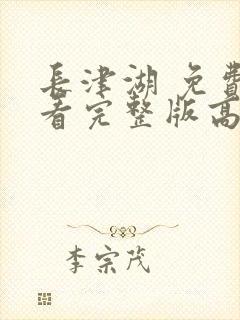 長津湖 免費
看完整版高
李宗茂